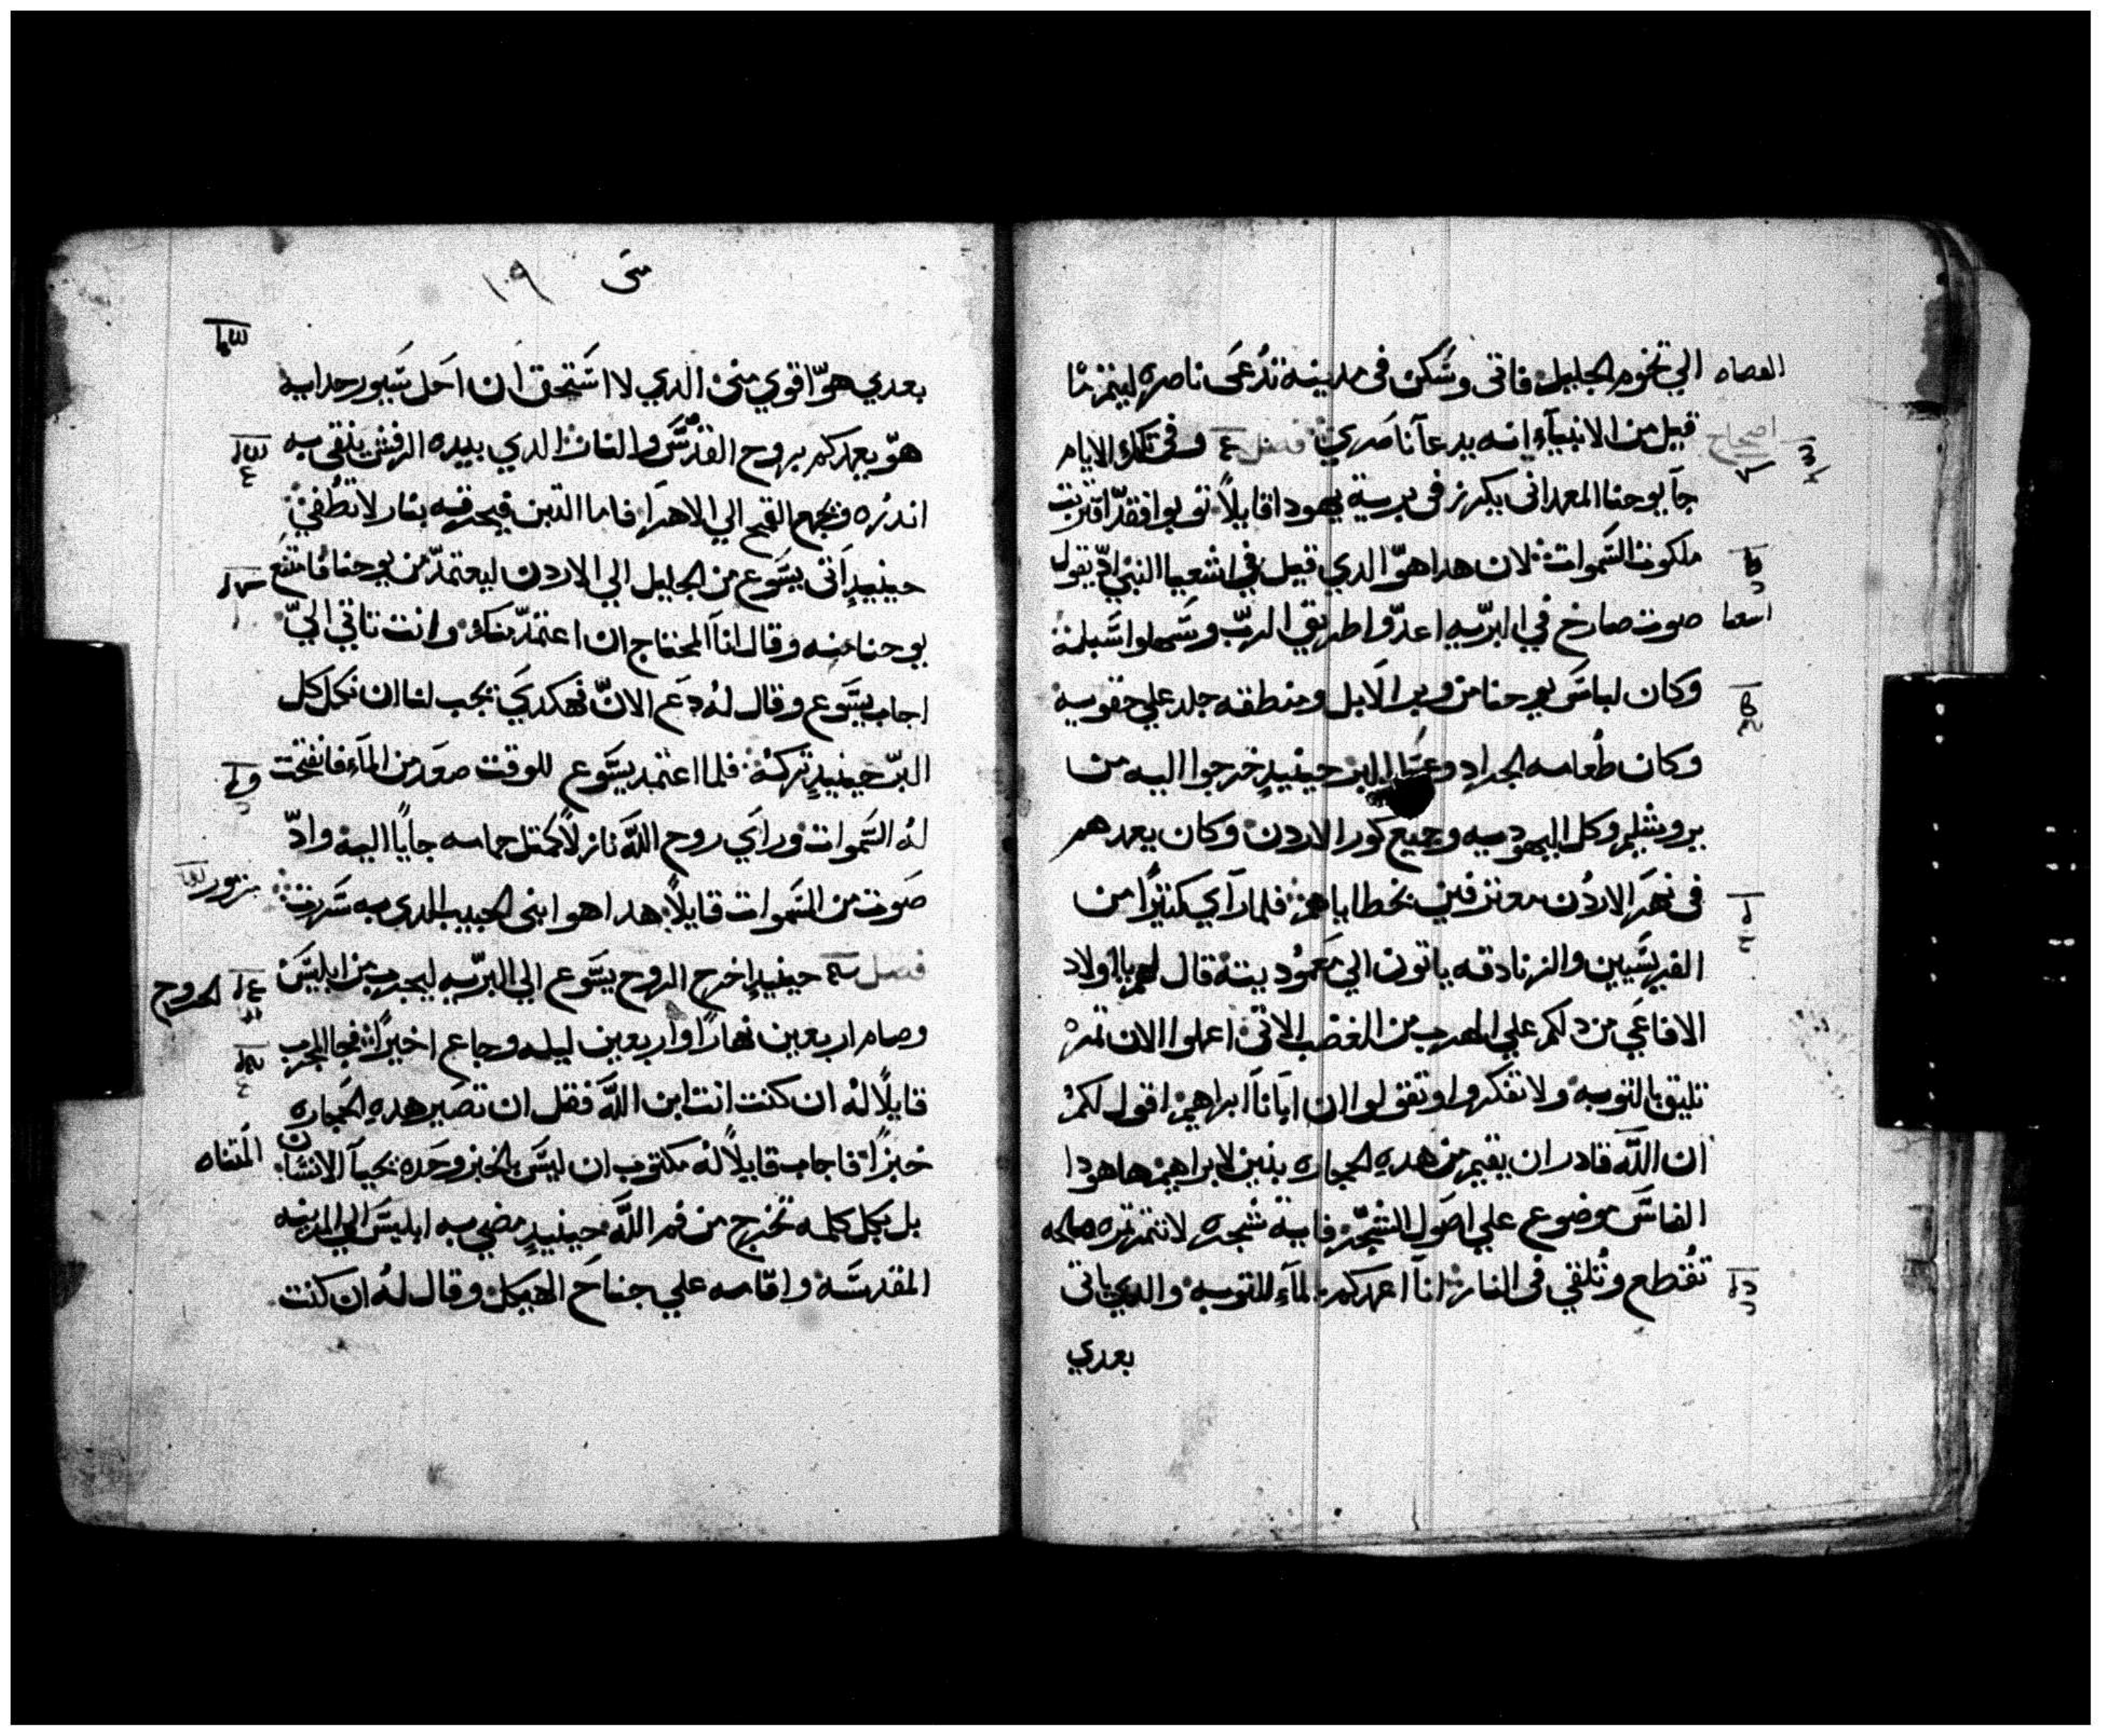 الي تخوم الجليل فاتى وسَكن فى مدينة تدُعَى ناصره ليتم ما
القضاه
قيل من الانبيآء انه يدعا ناصَري فصل وفى تلك الايام
اصحاح
جآ يوحنا المعمدانى يكرز فى برية يهودا قايلاً توبوا فقد اقتربت
ملكوت السَموات لان هدا هوّ الدي قيل في اشعيا النبي ادّ يقول
صوت صارخ في البرّيه اعدّوا طريق الربّ وسَهلوا سَبله
اشعيا
وكان لباسَ يوحنا من وبر الابل ومنطقه جلد علي حقويه
وكان طُعامه الجراد وعسَل البر حينيدٍ خرجوا اليه من
يروشليم وكل اليهوديه وجميع كور الاردن وكان يعمدهم
فى نهَر الاردُن معترفين بخطاياهم فلما رآي كثيرًا من
الفريسَيين والزنادقه ياتون الي مَعموُديته قال لهم يا اولاد
الافاعَي من دلكم علي الهرب من الغضب الاتى اعملوا الان تمره
تليق بالتوبه ولا تفكروا وتقولوا ان ابَانا ابراهيم اقول لكم
ان اللّه قادر ان يقيم من هده الحجاره بنين لابراهيم ها هودا
الفاسَ موضوع علي اصَول الشجَر فاية شجره لا تتمر تمره صالحه
تقُطع وتُلقي فى النار انآ اعمدكم بالمآء للتوبه والدي ياتى
بعدي
متى ١٩
بعدي هوّ اقوي منى الدي لا اسَتحق ان احَل سَيور حدايه
هوّ يعمدكم بروح القدسَ والنار الدي بيده الرفش ينقي به
اندره ويجمع القمح الي الاهرآ فاما التبن فيحرقه بنار لا تطُفيَ
حينيدٍ اتَى يسَوع من الجليل الي الاردن ليعتمدّ من يوحنا فامتنَع
يوحنا منه وقال اناَ المحتاج ان اعتمدّ منك وانت تاتي اليّ
اجاب يسَوع وقال لهُ دعَ الانّ فهكديَ يجب لنا ان نكمل كل
البرّ حينيدٍ تركهُ فلما اعتمد يسَوع للوقت صعَد من المآء فانفتحت
لهُ السَموات ورايَ روح اللّه نازلاً كمتل حمامه جاياً اليه وادّ
صَوت من السَموات قايلاً هدا هو ابنى الحبيب الدي به سَررت
مزمور
فصل حينيدٍ اخرج الروح يسَوع الي البرّيه ليجرب من ابليسَ
الخروج
وصام اربعين نهارًا واربعين ليله وجاع اخيرًا فجا المجرب
قايلًا لهُ ان كنت انت ابن اللّه فقل ان تصَير هدهِ الحجَاره
خبزًا فاجاب قايلاً لهُ مكتوب ان ليسَ بالخبز وحَده يحيآ الانسَان
المتناه
بل بكل كلمه تخرج من فم اللّه حينيدٍ مضي به ابليسَ الي المدينه
المقدسَه واقامه علي جناحَ الهيكل وقال لهُ ان كنت